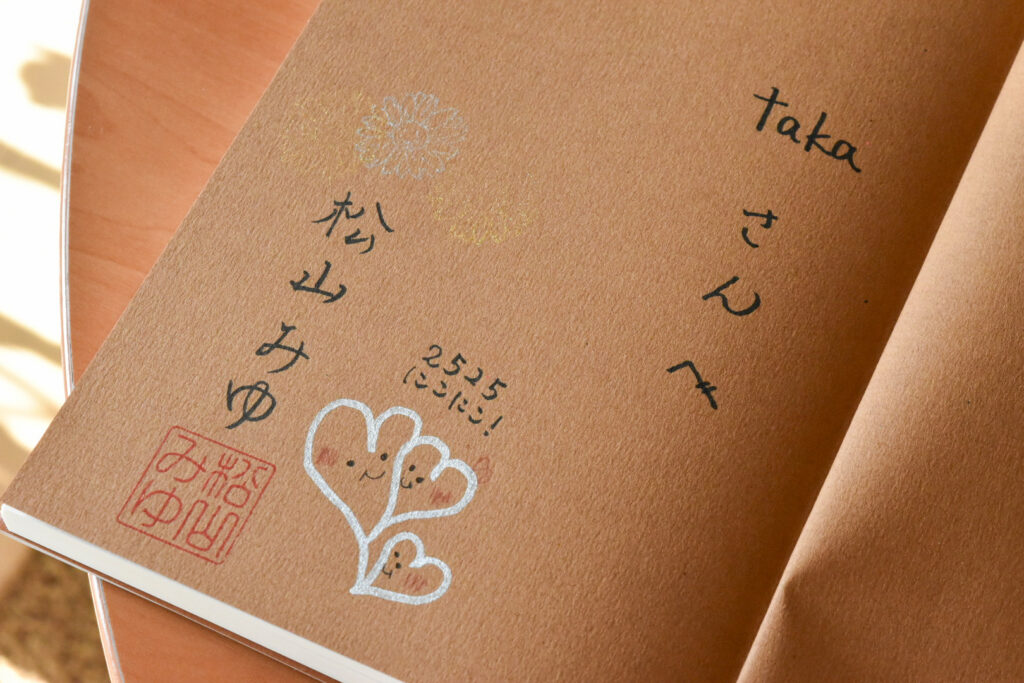 takaさんへ
2525
にこにこ!
松山みゆ
松山
みゆ